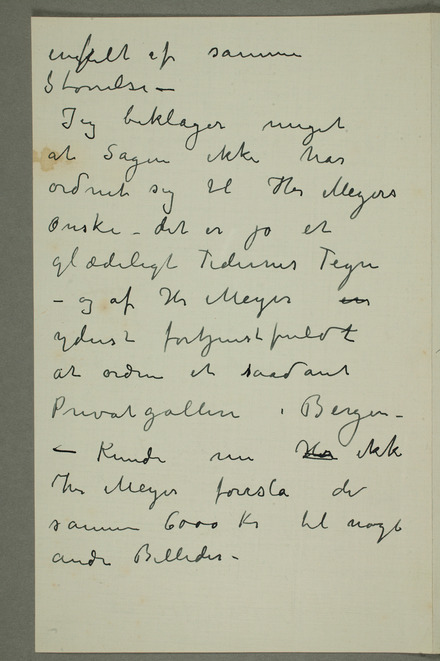 enkelt af samme
Størrelse –
Jeg beklager meget
at Sagen ikke har
ordnet sig til Her Meyers
Ønske – det er jo et
glædeligt Tidernes Tegn
– og af Hr Meyer en
yderst fortjenstfuldt
at ordne et saadant
Privatgalleri i Bergen –
– Kunde nu Her ikke
Her Meyer foresla de
samme 6000 Kr til nogle
andre Billeder –